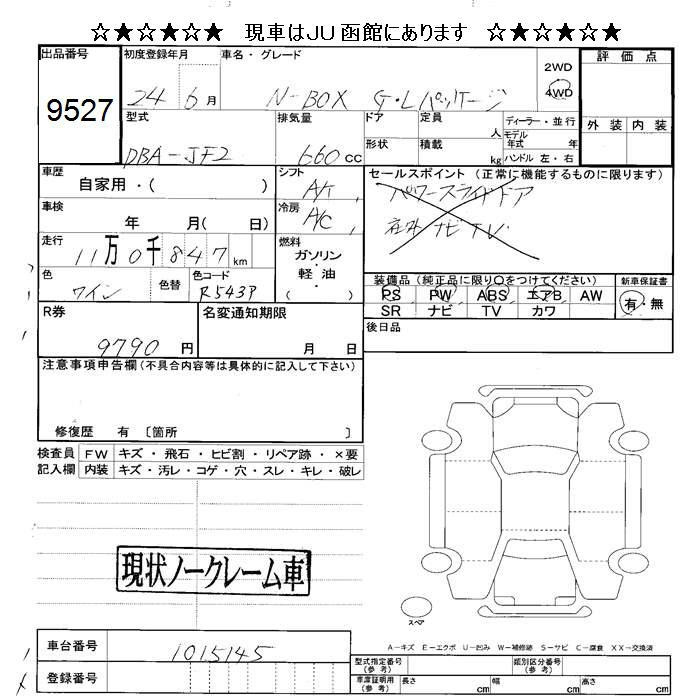 ☆★☆★☆★ 現車はJU函館にあります ☆★☆★☆★
出品番号 初度登録年月 車名・グレード 評価点
9527 24 6月 N-BOX G・Lパッケージ 2WD 4WD
型式 排気量 ドア 定員 人 ディーラー・並行 外装 内装
DBA-JF2 660cc 形状 積載 kg モデル年式 年
ハンドル 左・右
車歴 自家用・( ) シフト A/T セールスポイント (正常に機能するものに限ります)
パワースライドドア
社外ナビTV
車検 年 月( 日) 冷房 A/C
走行 11万0千847km 燃料 ガソリン・軽油・( )
色 ワイン 色替 色コード R543P
装備品 (純正品に限り○をつけてください) 新車保証書
PS PW ABS エアB AW 有・無
SR ナビ TV カワ
R券 9790円 名変通知期限 月 日 後日品
注意事項申告欄 (不具合内容等は具体的に記入して下さい)
修復歴 有 〔箇所 〕
検査員記入欄 FW キズ・飛石・ヒビ割・リペア跡・×要
内装 キズ・汚レ・コゲ・穴・スレ・キレ・破レ
現状ノークレーム車
スペア
A-キズ E-エクボ U-凹み W-補修跡 S-サビ C-腐食 XX-交換済
車台番号 1015145
型式指定番号(参考) 類別区分番号(参考)
登録番号
車庫証明用(参考) 長さ cm 幅 cm 高さ cm